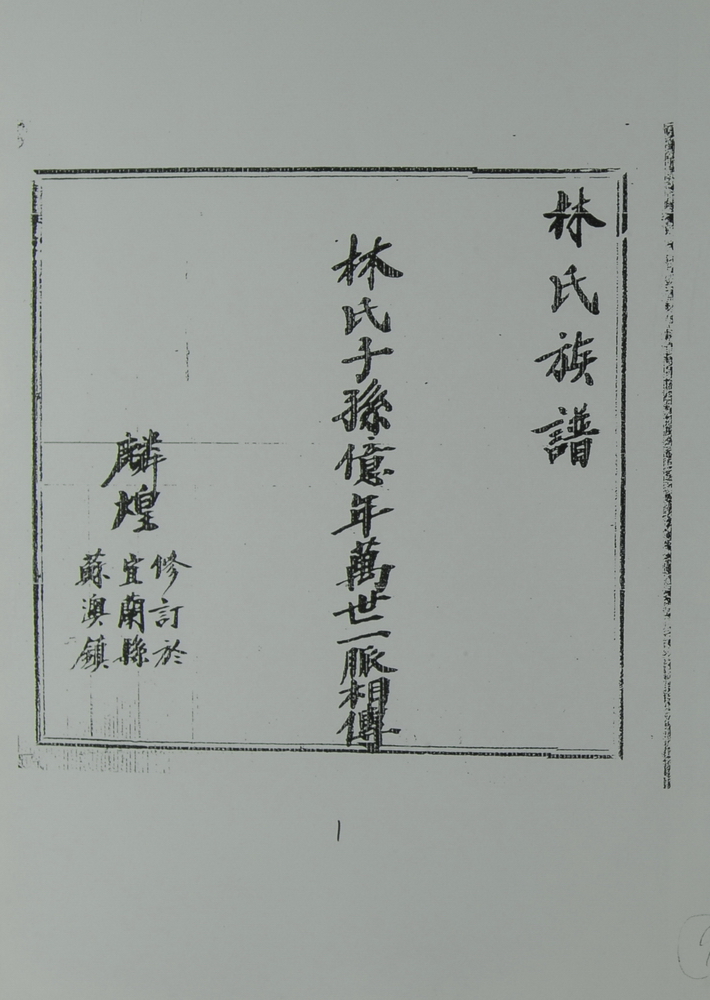 林氏族譜
林氏子孫億年萬世一脈相傳
麟煌
修訂於
宜蘭縣
蘇澳鎮
1